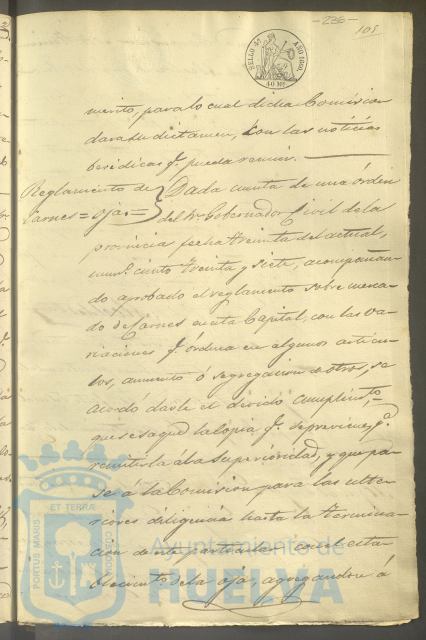 -236-
105
SELLO 4º AÑO 1860.
40 Ms
miento, para lo cual dicha Comision
dará su dictamen, con las noticias
beridicas qe. pueda reunir.
Reglamento de Carnes = ojas =
Dada cuenta de una órden
del Sr. Gobernador Civil de la
provincia fecha treinta del actual,
numo. ciento treinta y siete, acompañan-
do aprobado el reglamento sobre merca-
do de Carnes en esta Capital, con las va-
riaciones qe. órdena en algunos articu-
los, aumento ó segregacion de otros, se
acordó darle el devido cumplimto.
que se saque la Copia qe. se previene pa.
remitirla á la Superioridad, y que pa-
se á la Comision para las ulte-
riores diligencias hasta la termina-
ción de este particular con el esta-
blecimto. de la oja, agregandose á
PORTUS MARIS ET TERRÆ CUSTODIA
Ayuntamiento de
HUELVA